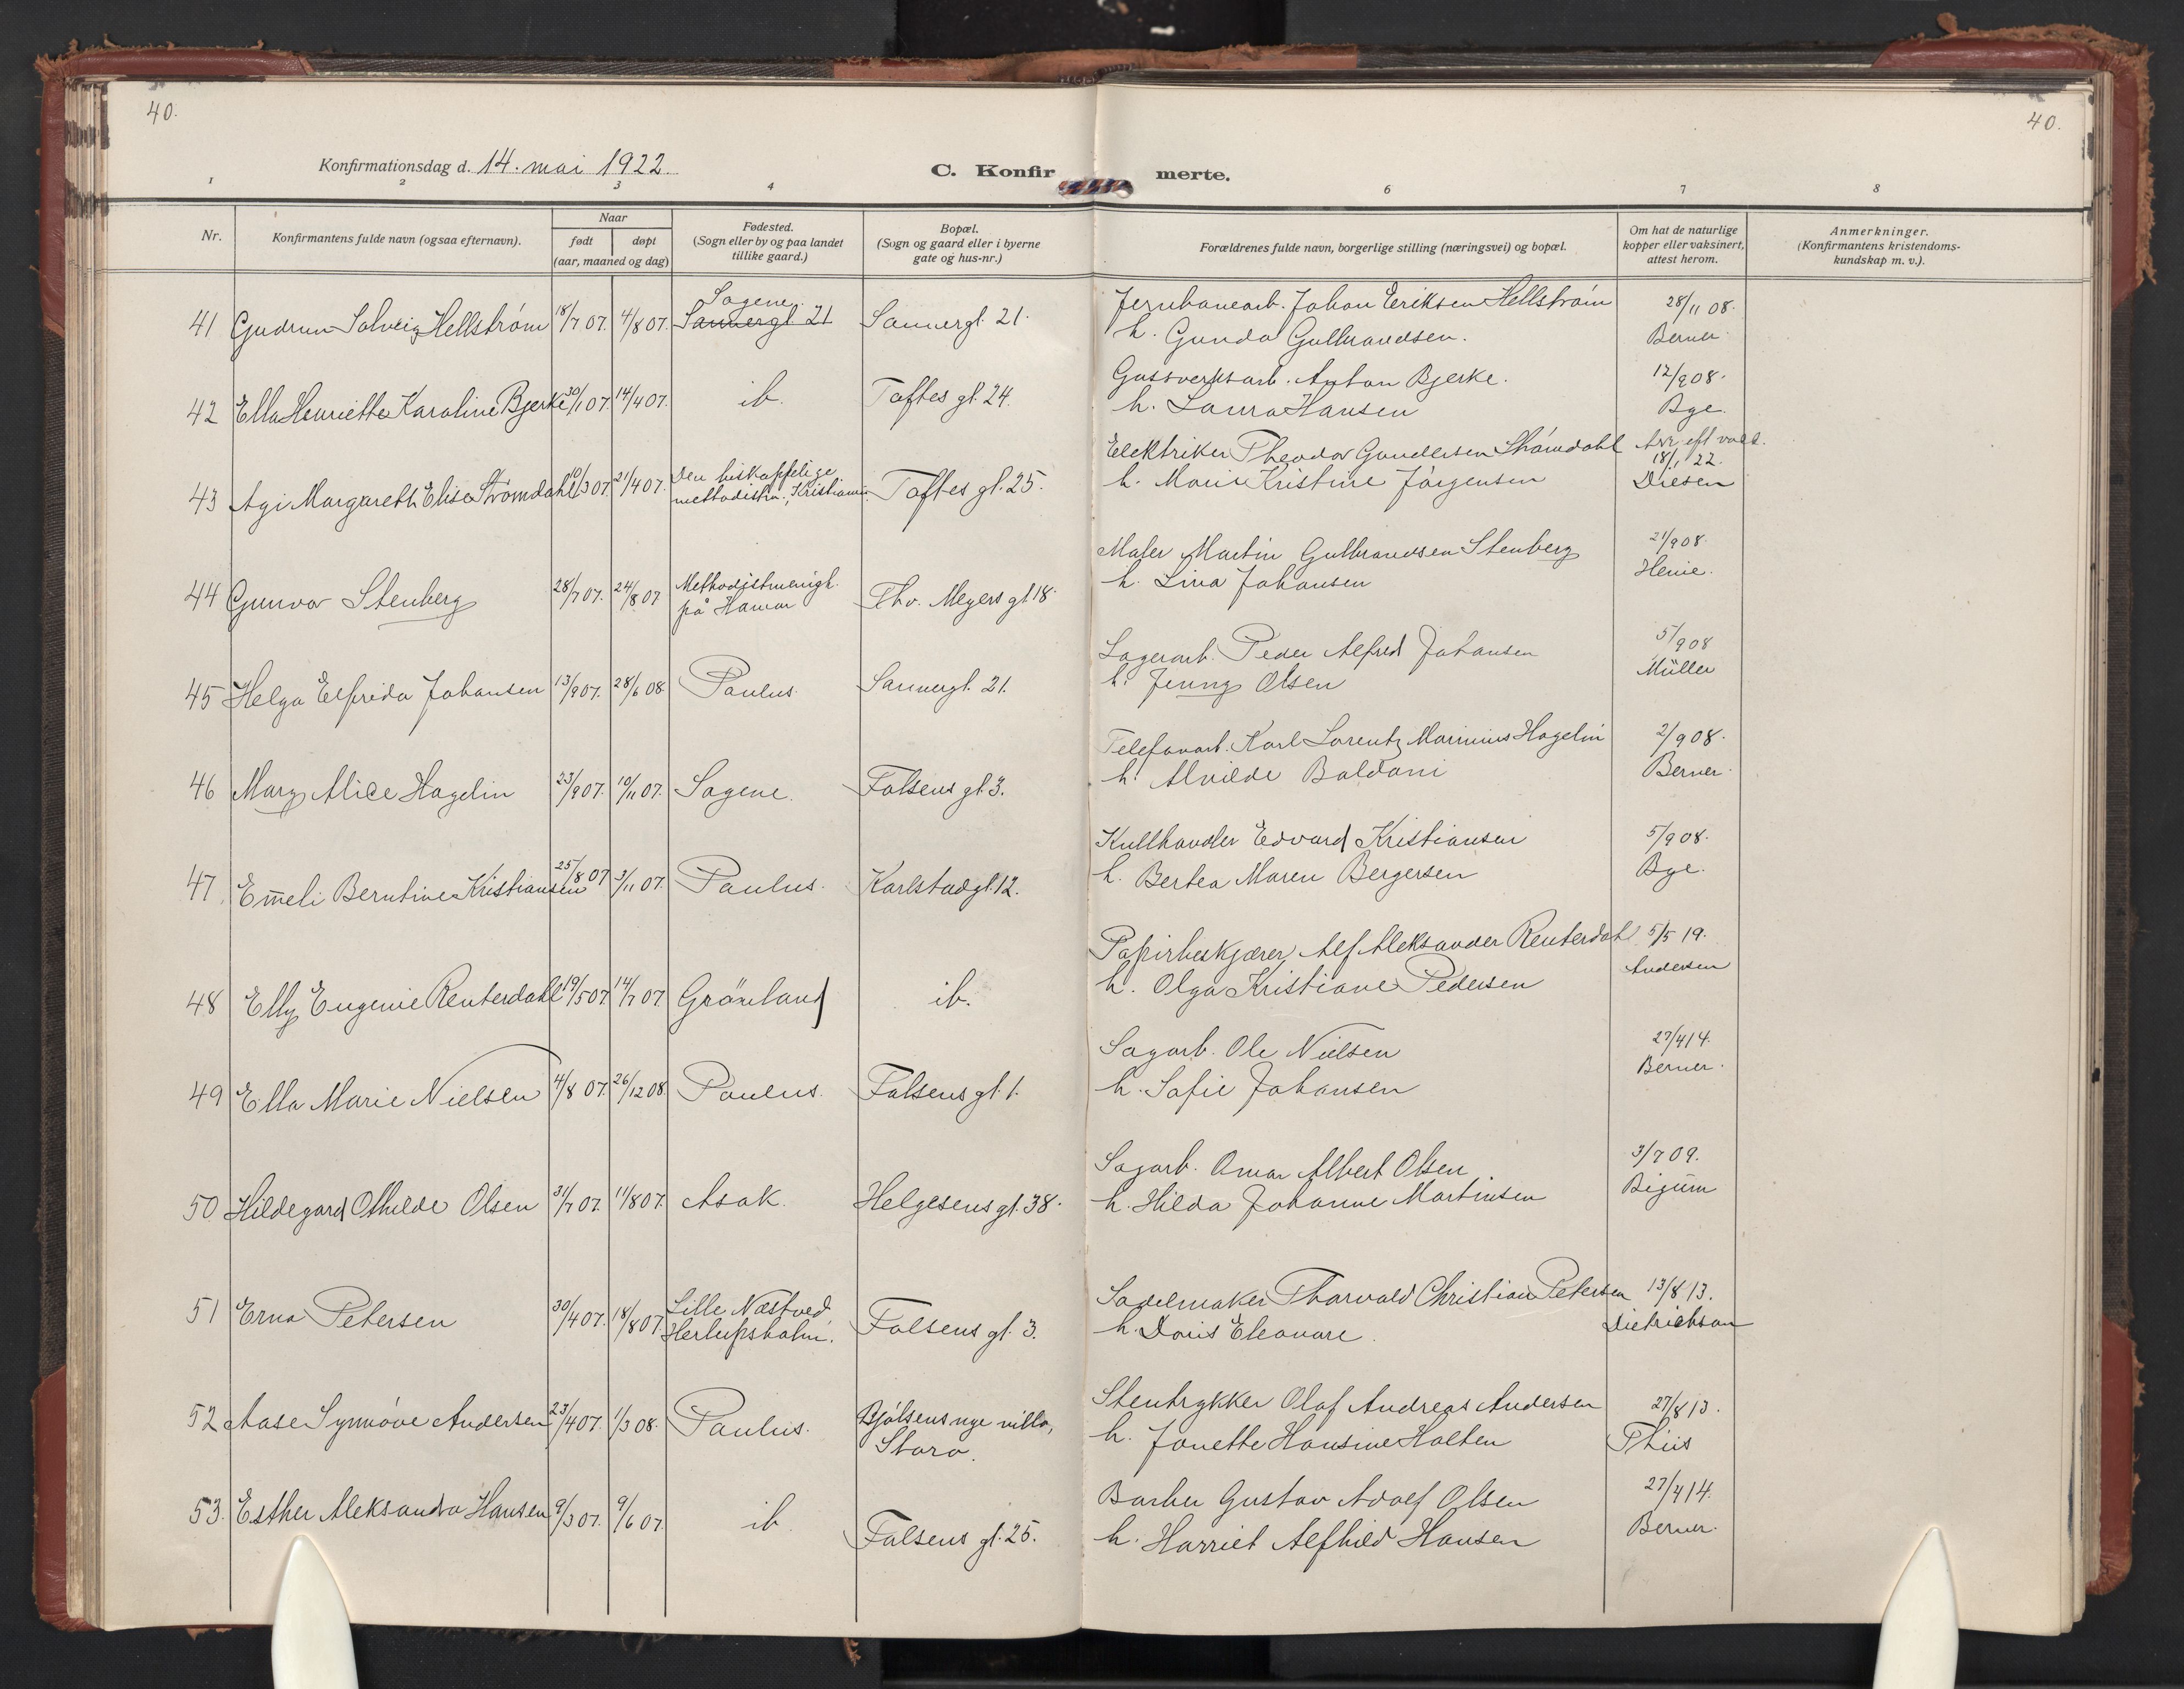 40.
40.
Konfirmationsdag d. 14. mai 1922.
C. Konfirmerte.
1 2 3 4 6 7 8
Nr.
Konfirmantens fulde navn (ogsaa efternavn).
Naar
født døpt
(aar, maaned og dag)
Fødested.
(Sogn eller by og paa landet
tillike gaard.)
Bopæl.
(Sogn og gaard eller i byerne
gate og hus-nr.)
Forældrenes fulde navn, borgerlige stilling (næringsvei) og bopæl.
Om hat de naturlige
kopper eller vaksinert,
attest herom.
Anmerkninger.
(Konfirmantens kristendoms-
kundskap m. v.).
Sagene.
41 Gudrun Solveig Hellstrøm 18/7 07. 4/8 07. Sannergt. 21 Sannergt. 21. Jernbanearb. Johan Eeriksen Hellstrøm 28/11 08.
h. Gunda Gulbrandsen. Berner.
42 Ella Henriette Karoline Bjerke 30/1 07. 14/4 07. ib. Toftes gt. 24. Gassverksarb. Anton Bjerke. 12/9 08.
h. Laura Hansen Bge.
43 Agi Margareth Elise Strømdahl 10/3 07. 21/4 07. Den biskoppelige
methodistm., Kristiania. Toftes gt. 25. Elektriker Theodor Gundersen Strømdahl
18/1 22.
h. Marie Kristine Jørgensen Diesen
44 Gunvor Stenberg 28/7 07. 24/8 07 Methodistmenigh.
på Hamar Thv. Meyers gt 18. Maler Martin Gulbrandsen Stenberg 21/9 08.
h. Lina Johansen Henie.
45 Helga Elfrida Johansen 13/9 07. 28/6 08. Paulus. Sannergt. 21. Lagerarb. Peder Alfred Johansen 5/9 08
h. Jenny Olsen Müller
46 Mary Alice Hagelin 23/9 07. 10/11 07. Sagene. Falsens gt. 3. Telefonarb. Karl Lorentz Marinius Hagelin 2/9 08.
h. Alvilde Baldani Berner.
47 Em̄eli Berntine Kristiansen 25/8 07 3/11 07. Paulus. Karlstadgt. 12. Kullhandler Edvard Kristiansen 5/9 08.
h. Bertea Maren Bergersen Bge.
48 Elly Eugenie Renterdahl 19/5 07. 14/7 07 Grønland ib. Papirbeskjærer Alf Aleksander Renterdahl 5/5 19.
h. Olga Kristiane Pedersen Andersen
49 Ella Marie Nielsen 4/8 07. 26/12 08. Paulus. Falsens gt. 1. Sagarb. Ole Nielsen 27/4 14.
h. Sofie Johansen Berner.
50 Hildegard Othilde Olsen 31/7 07. 11/8 07. Asak. Helgesens gt. 38. Sagarb. Omar Albert Olsen 3/7 09.
h. Hilda Johanne Martinsen Bigum
51 Erna Petersen 30/4 07. 18/8 07. Lille Næstved
Herlufsholm. Falsens gt. 3. Sadelmaker Thorvald Christian Petersen 13/8 13.
h. Doris Eleonore. Dietrichson
52 Aase Synnøve Andersen 23/4 07. 1/3 08. Paulus. Bjølsens nye villa,
Storo. Stentrykker Olaf Andreas Andersen 27/8 13.
h. Jonette Hansine Holten Thiis
53. Esther Aleksandra Hansen 9/3 07. 9/6 07. ib. Falsens gt. 25. Barber Gustav Adolf Olsen 27/4 14.
h. Harriet Alfhild Hansen Berner.